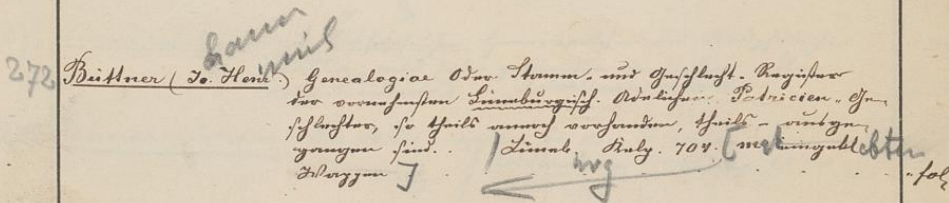 272 Büttner (Jo. Henr.) Genealogiae Oder Stamm- und Geschlecht-Register
der vornehmsten Lüneburgisch. Adelichen Patricien-Ge-
schlechter, so theils annoch vorhanden, theils - ausge-
gangen sind. . / Lüneb. Kelp. 704. [mit eingeklebten
Wappen]
fol